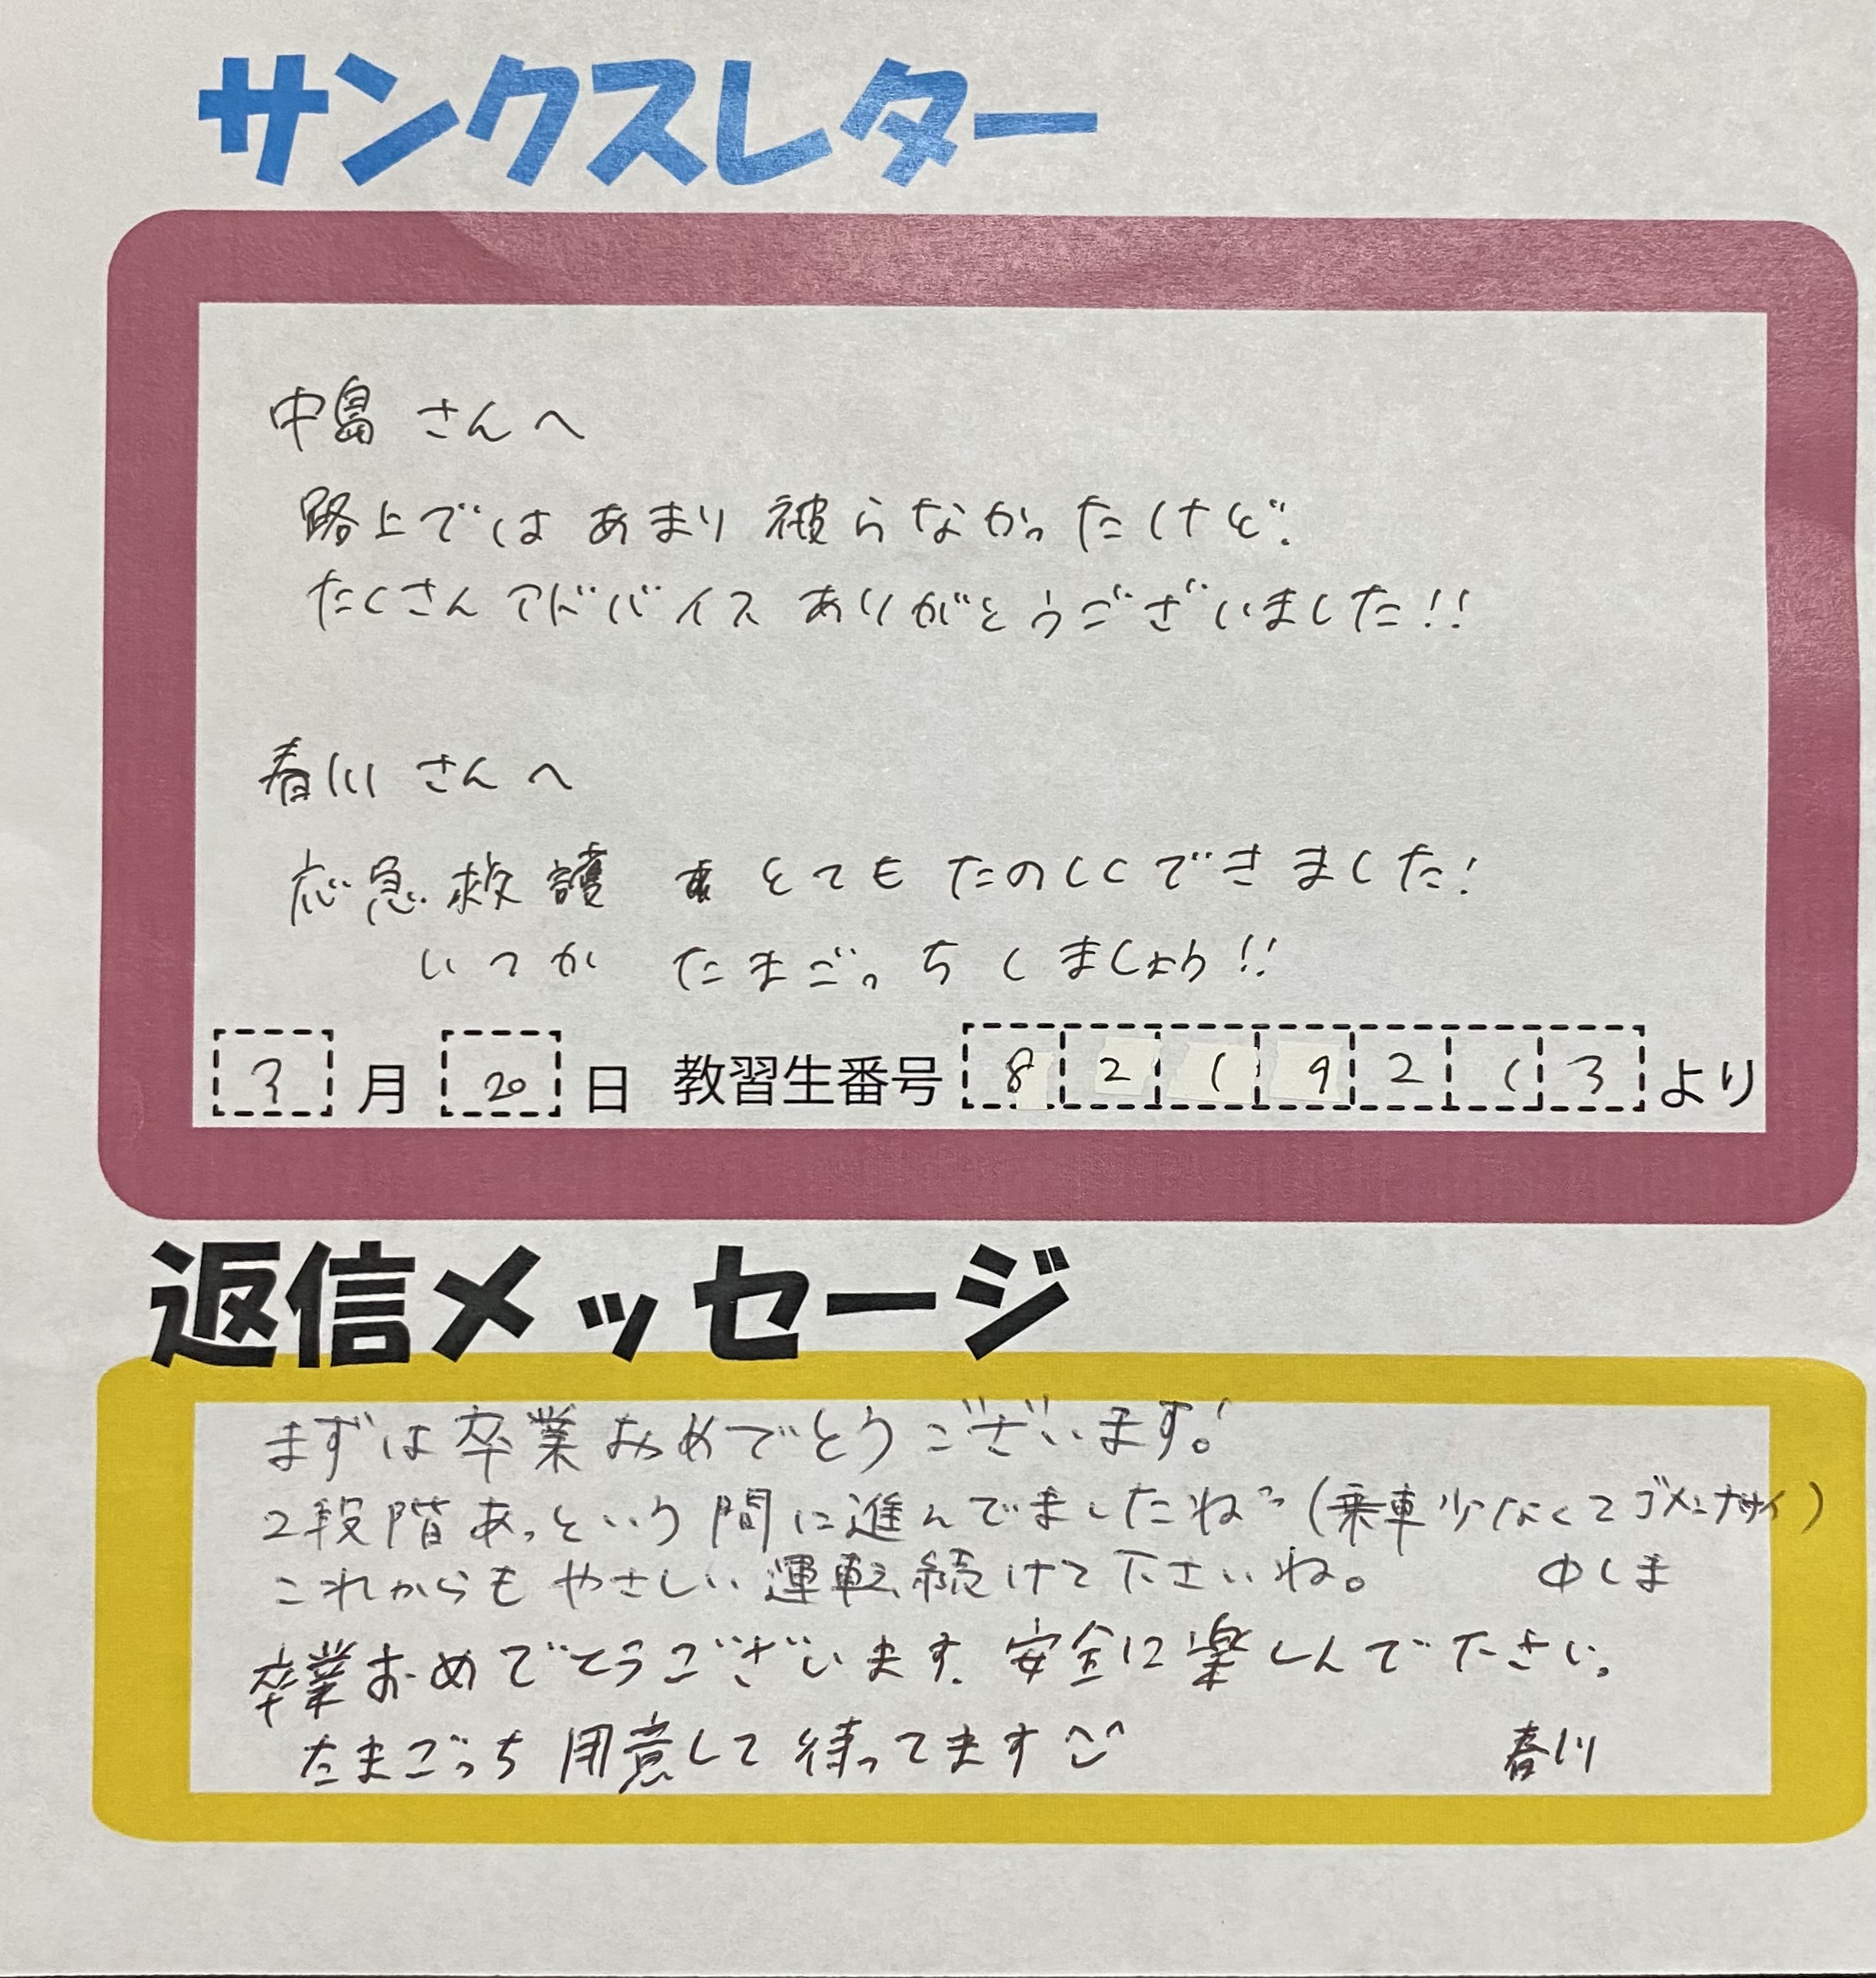 サンクスレター
中島 さんへ
路上では あまり 被らなかったけど
たくさん アドバイス ありがとうございました!!
春川 さんへ
応急救護 とても たのしくできました!
いつか たまごっち しましょう!!
3 月 20 日 教習生番号 8 2 1 9 2 1 3 より
返信メッセージ
まずは 卒業 おめでとう ございます!
2段階 あっという間に進んでましたね (乗車少なくてゴメンナサイ)
これからも やさしい 運転 続けて下さいね。 中しま
卒業おめでとうございます. 安全に楽しんで下さい。
たまごっち 用意して 待ってます 春川